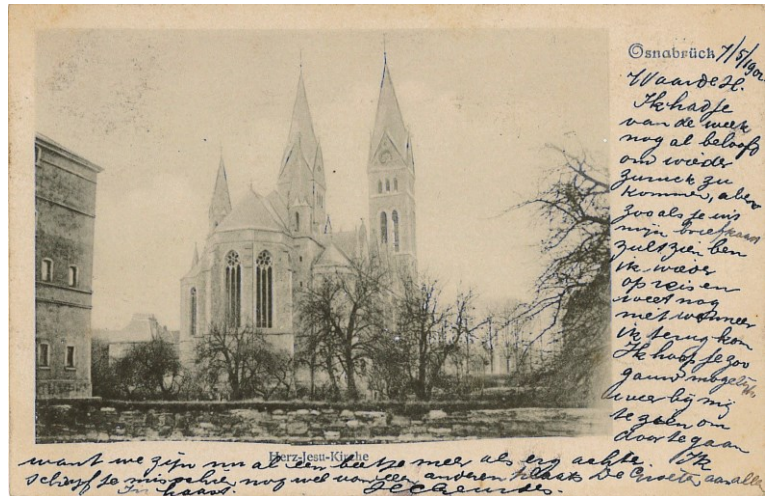 Osnabrück 7/5/1902
Waarde H.
Ik had je
van de week
nog al beloofd
om wieder
zuruck zu
kommen, aber
zoo als je uis
mijn briefkaart
zult zien ben
ik wieder
op reis en
weet nog
niet wanneer
ik terug kom
Ik hoop je zoo
gauw mogelijk
weer bij mij
te zien om
door te gaan
Herz-Jesu-Kirche
want we zijn nu al een beetje meer als erg achter. Ik
schrijf je misschien nog wel van een anderen plaats De Groeten aan allen
in haast.